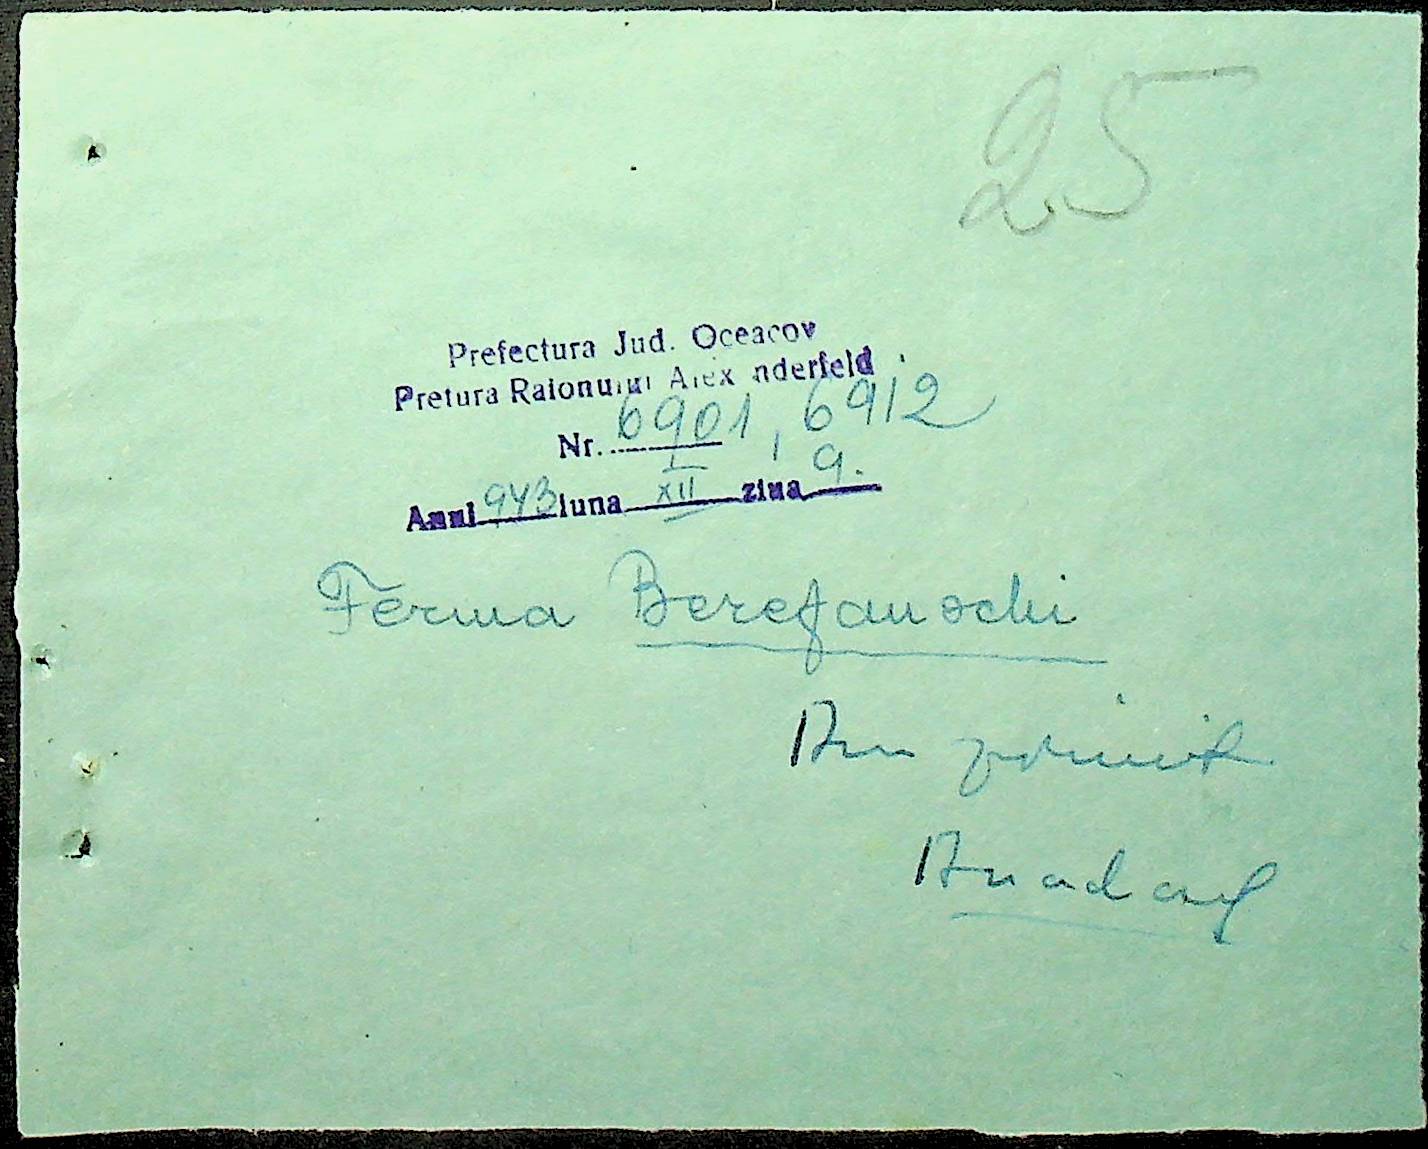 25
Prefectura Jud. Oceacov
Pretura Raionului Alex nderfeld
Nr. 6901, 6912
Anul 943 luna XII ziua 9.
Ferma Berefanochi
Am primit